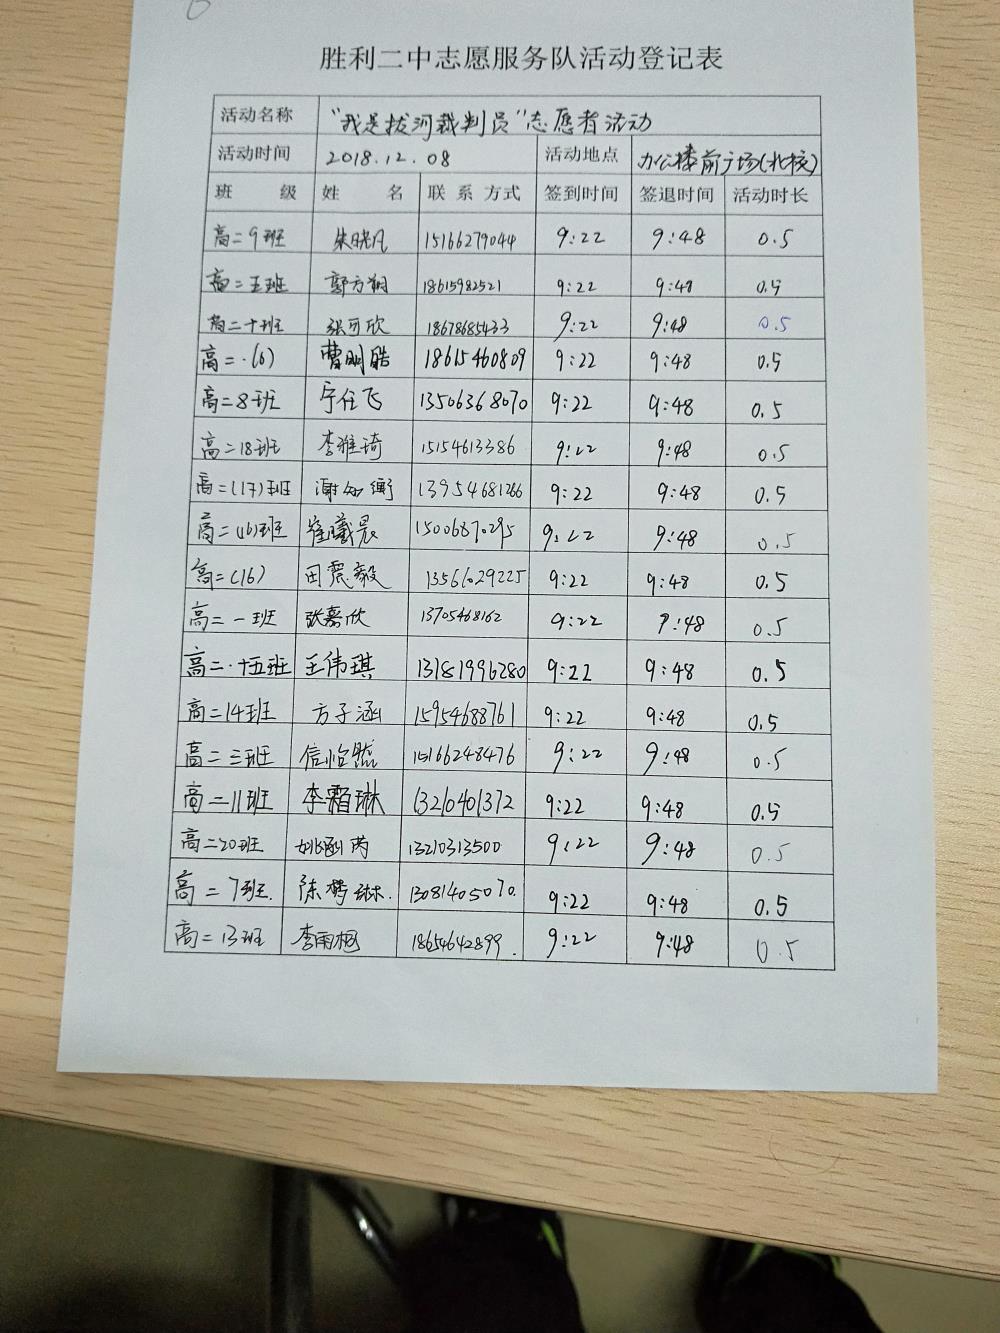 胜利二中志愿服务队活动登记表
活动名称 "我是拔河裁判员"志愿者活动
活动时间 2018.12.08 活动地点 办公楼前广场(北校)
班 级 姓 名 联系方式 签到时间 签退时间 活动时长
高二9班 朱晓凡 15166279044 9:22 9:48 0.5
高二五班 郭方翔 18615982521 9:22 9:48 0.5
高二十班 张可欣 18678685433 9:22 9:48 0.5
高二.(6) 曹明皓 18615460809 9:22 9:48 0.5
高二8班 宁任飞 13506368070 9:22 9:48 0.5
高二18班 李雅琦 15154613386 9:22 9:48 0.5
高二(17)班 谢知衡 13954681266 9:22 9:48 0.5
高二(16)班 崔曦晨 15006870295 9:22 9:48 0.5
高二(16) 田震毅 13566029225 9:22 9:48 0.5
高二一班 张嘉欣 13705468162 9:22 9:48 0.5
高二.十五班 王伟琪 13181996280 9:22 9:48 0.5
高二14班 方子涵 15954688761 9:22 9:48 0.5
高二三班 信怡然 15166248476 9:22 9:48 0.5
高二11班 李霜琳 13210401372 9:22 9:48 0.5
高二20班 姚涵芮 13210313500 9:22 9:48 0.5
高二7班. 陈梦琳. 13081405070. 9:22 9:48 0.5
高二13班 李雨桐 18654642899. 9:22 9:48 0.5